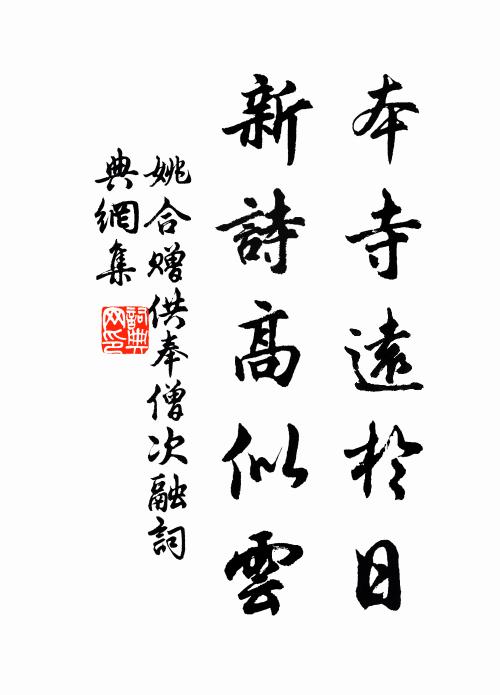 本寺遠於日
新詩高似雲
姚合贈供奉僧次融詞
典網集
詞典网印